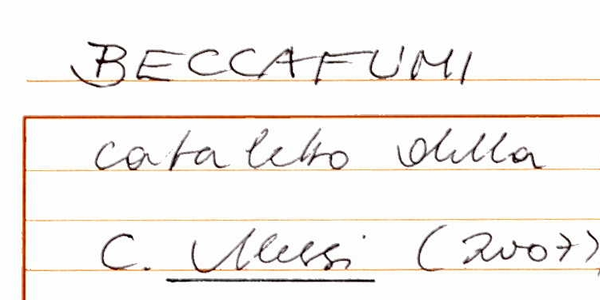 BECCAFUMI
cataletto della
C. Alessi (2007)